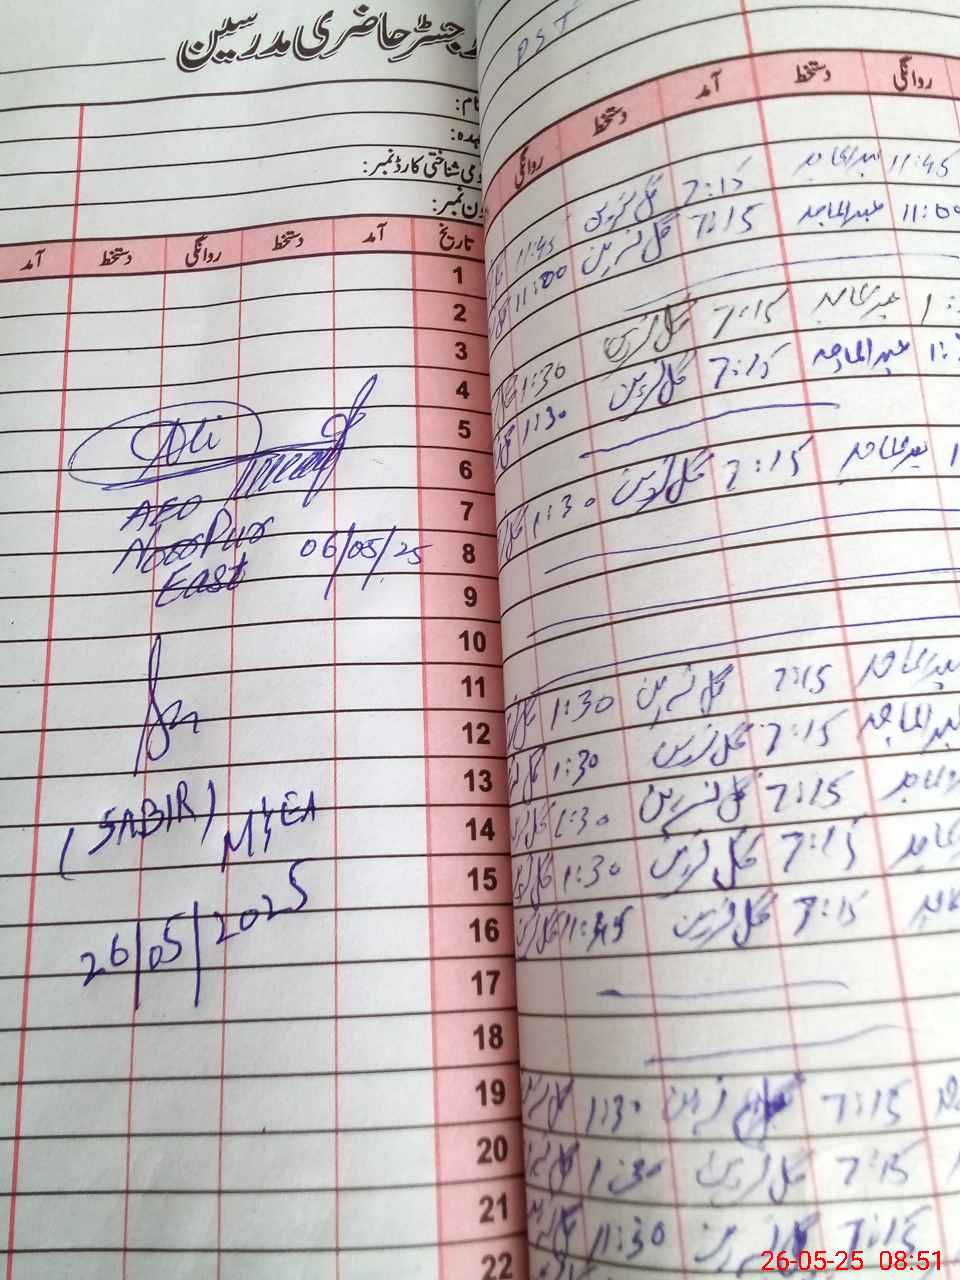 رجسٹر حاضری مدرسین
نام:
عہدہ:
قومی شناختی کارڈ نمبر:
فون نمبر:
تاریخ آمد دستخط روانگی دستخط آمد
1
2
3
4
5
6
7
8
9
10
11
12
13
14
15
16
17
18
19
20
21
22
Ali
AEO
NoorPur
East 06/05/25
(SABIR)
M&EA
26/05/2025
PST
روانگی دستخط آمد دستخط روانگی
11:45 عبدالماجد 7:15 گل نسرین 11:45
11:00 عبدالماجد 7:15 گل نسرین 11:00
عبدالماجد 7:15 گل نسرین 1:30
عبدالماجد 7:15 گل نسرین 1:30
عبدالماجد 7:15 گل نسرین 1:30
عبدالماجد 7:15 گل نسرین 1:30
عبدالماجد 7:15 گل نسرین 1:30
7:15 گل نسرین 1:30
7:15 گل نسرین 1:30
7:15 گل نسرین 11:45
7:15 گل نسرین 1:30
7:15 گل نسرین 1:30
7:15 گل نسرین 11:30
26-05-25 08:51